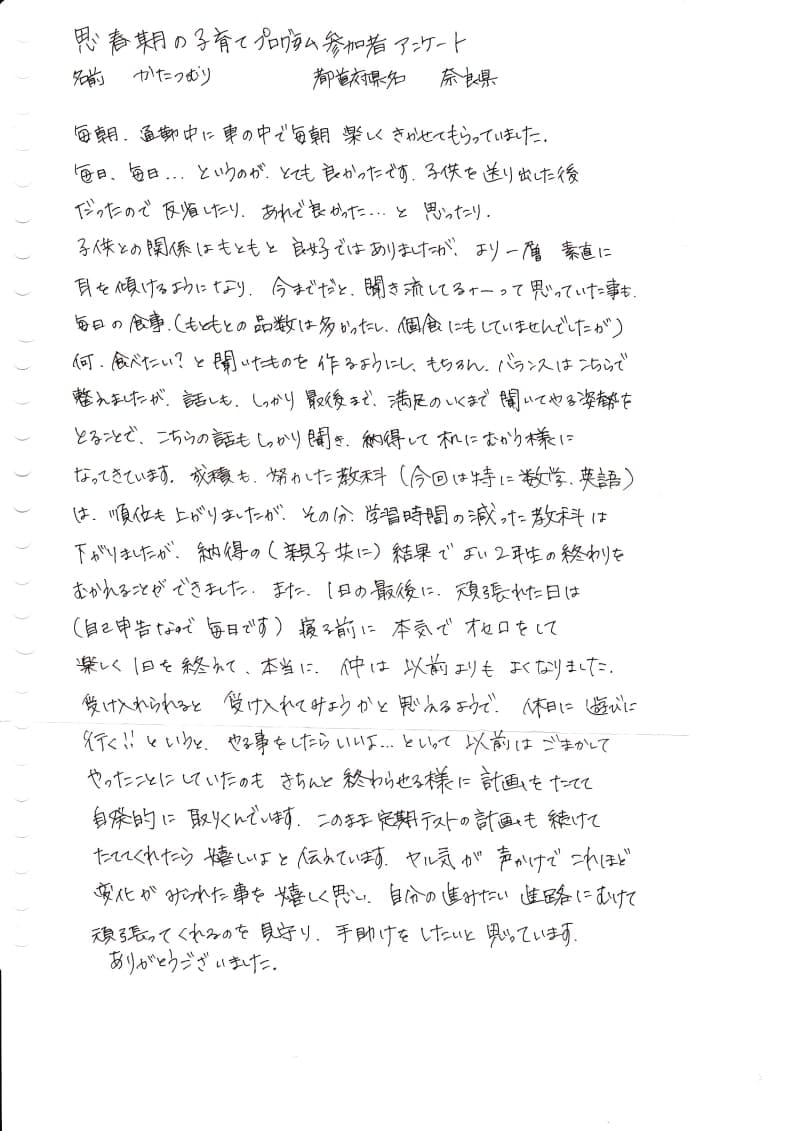 思春期の子育てプログラム参加者アンケート
名前 かたつむり 都道府県名 奈良県
毎朝、通勤中に車の中で毎朝楽しくきかせてもらっていました。
毎日、毎日…というのが、とても良かったです。子供を送り出した後
だったので反省したり、あれで良かった…と思ったり。
子供との関係はもともと良好ではありましたが、より一層 素直に
耳を傾けるようになり、今までだと、聞き流してるなーって思っていた事も、
毎日の食事、(もともとの品数は多かったし、個食にもしていませんでしたが)
何、食べたい?と聞いたものを作るようにし、もちろん、バランスはこちらで
整えましたが、話しも、しっかり最後まで、満足のいくまで聞いてやる姿勢を
とることで、こちらの話もしっかり聞き、納得して机にむかう様に
なってきています。成積も、努力した教科(今回は特に数学、英語)
は、順位も上がりましたが、その分、学習時間の減った教科は
下がりましたが、納得の(親子共に)結果でよい2年生の終わりを
むかれることができました。また、1日の最後に、頑張れた日は
(自己申告なので毎日です)寝る前に本気でオセロをして
楽しく1日を終えて、本当に、仲は以前よりもよくなりました。
受け入れられると受け入れてみようかと思えるようで、休日に遊びに
行く!!というと、やる事をしたらいいよ…といって以前はごまかして
やったことにしていたのもきちんと終わらせる様に計画をたてて
自発的に取りくんでいます。このまま定期テストの計画も続けて
たててくれたら嬉しいよと伝えています。ヤル気が声かけでこれほど
変化がみられた事を嬉しく思い、自分の進みたい進路にむけて
頑張ってくれるのを見守り、手助けをしたいと思っています。
ありがとうございました。